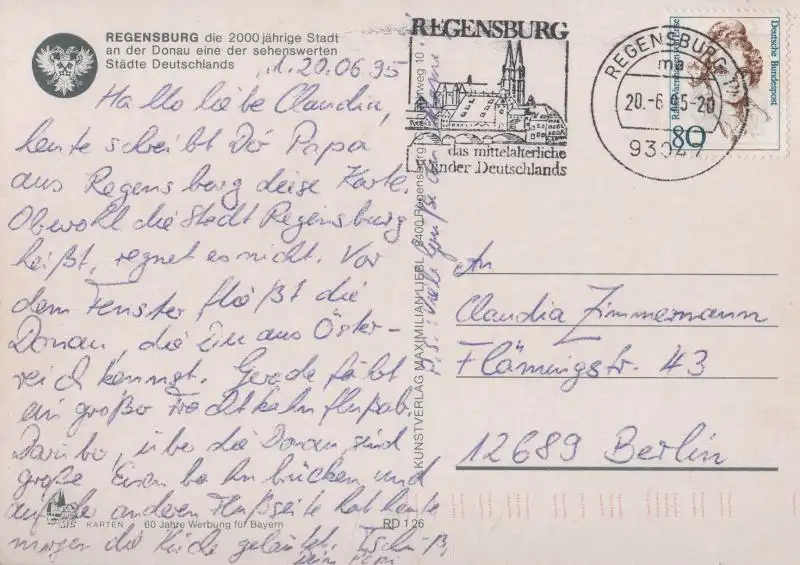 REGENSBURG die 2000jährige Stadt
an der Donau eine der sehenswerten
Städte Deutschlands
20.06.95
Hallo liebe Claudia,
heute schreibt Dir Papa
aus Regensburg diese Karte.
Obwohl die Stadt Regensburg
heißt, regnet es nicht. Vor
dem Fenster fließt die
Donau, die aus Öster-
reich kommt. Gerade fährt
ein großer Frachtkahn flußab.
Darüber, über die Donau sind
große Eisenbahnbrücken und
auf der anderen Flußseite hat heute
morgen die geläutet. Tschüß,
Dein Papa
60 Jahre Werbung für Bayern
KARTEN
RD 126
KUNSTVERLAG MAXIMILIAN LIEBL, 8400 Regensburg
weg 10
P.S.: Viele Grüße an
REGENSBURG
das mittelalterliche
Wunder Deutschlands
REGENSBURG
ma
20.-6.95-20
9304
Deutsche Bundespost
80
An
Claudia Zimmermann
Flämingstr. 43
12689 Berlin